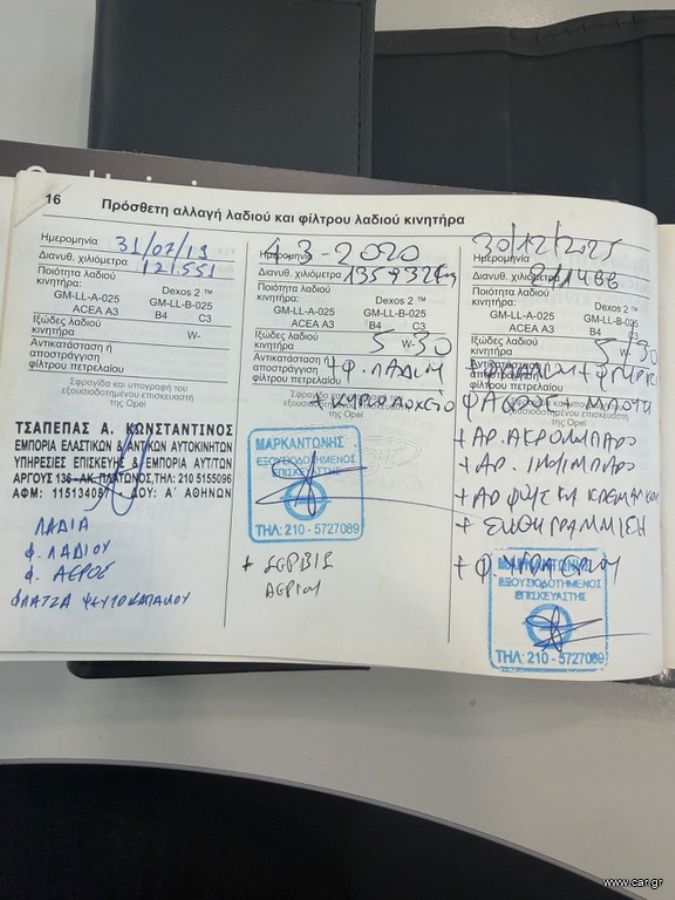 16
Πρόσθετη αλλαγή λαδιού και φίλτρου λαδιού κινητήρα
Ημερομηνία 31/07/19
Διανυθ. χιλιόμετρα 121.551
Ποιότητα λαδιού κινητήρα: Dexos 2 ™
GM-LL-A-025 GM-LL-B-025
ACEA A3 B4 C3
Ιξώδες λαδιού κινητήρα W-
Αντικατάσταση ή
αποστράγγιση
φίλτρου πετρελαίου
Σφραγίδα και υπογραφή του
εξουσιοδοτημένου επισκευαστή
της Opel
ΤΣΑΠΕΠΑΣ Α. ΚΩΝΣΤΑΝΤΙΝΟΣ
ΕΜΠΟΡΙΑ ΕΛΑΣΤΙΚΩΝ & ΑΝΤ/ΚΩΝ ΑΥΤΟΚΙΝΗΤΩΝ
ΥΠΗΡΕΣΙΕΣ ΕΠΙΣΚΕΥΗΣ & ΕΜΠΟΡΙΑ ΑΥΤ/ΤΩΝ
ΑΡΓΟΥΣ 136 - ΑΚ. ΠΛΑΤΩΝΟΣ, ΤΗΛ: 210 5155096
ΑΦΜ: 115134087 ΔΟΥ: Α΄ ΑΘΗΝΩΝ
ΛΑΔΙΑ
Φ. ΛΑΔΙΟΥ
Φ. ΑΕΡΟΣ
ΦΛΑΤΖΑ ΨΕΥΤΟΚΑΠΑΚΟΥ
Ημερομηνία 4-3-2020
Διανυθ. χιλιόμετρα
Ποιότητα λαδιού
κινητήρα: Dexos 2 ™
GM-LL-A-025 GM-LL-B-025
ACEA A3 B4 C3
Ιξώδες λαδιού
κινητήρα 5 W- 30
Αντικατάσταση ή
αποστράγγιση + Φ. ΛΑΔΙΟΥ
φίλτρου πετρελαίου
Σφραγίδα και υπογραφή του
εξουσιοδοτημένου επισκευαστή
της Opel
ΜΑΡΚΑΝΤΩΝΗΣ
ΕΞΟΥΣΙΟΔΟΤΗΜΕΝΟΣ
ΕΠΙΣΚΕΥΑΣΤΗΣ
ΤΗΛ: 210 - 5727089
+ ΣΕΡΒΙΣ
ΑΕΡΙΟΥ
Ημερομηνία 30/12/2025
Διανυθ. χιλιόμετρα
Ποιότητα λαδιού
κινητήρα: Dexos 2 ™
GM-LL-A-025 GM-LL-B-025
ACEA A3 B4 C3
Ιξώδες λαδιού
κινητήρα 5 W- 30
Αντικατάσταση ή
αποστράγγιση
φίλτρου πετρελαίου
+ ΑΡ. ΑΚΡΟΜΠΑΡΟ
+ ΕΥΘΥΓΡΑΜΜΙΣΗ
ΜΑΡΚΑΝΤΩΝΗΣ
ΕΞΟΥΣΙΟΔΟΤΗΜΕΝΟΣ
ΕΠΙΣΚΕΥΑΣΤΗΣ
ΤΗΛ: 210 - 5727089
www.car.gr